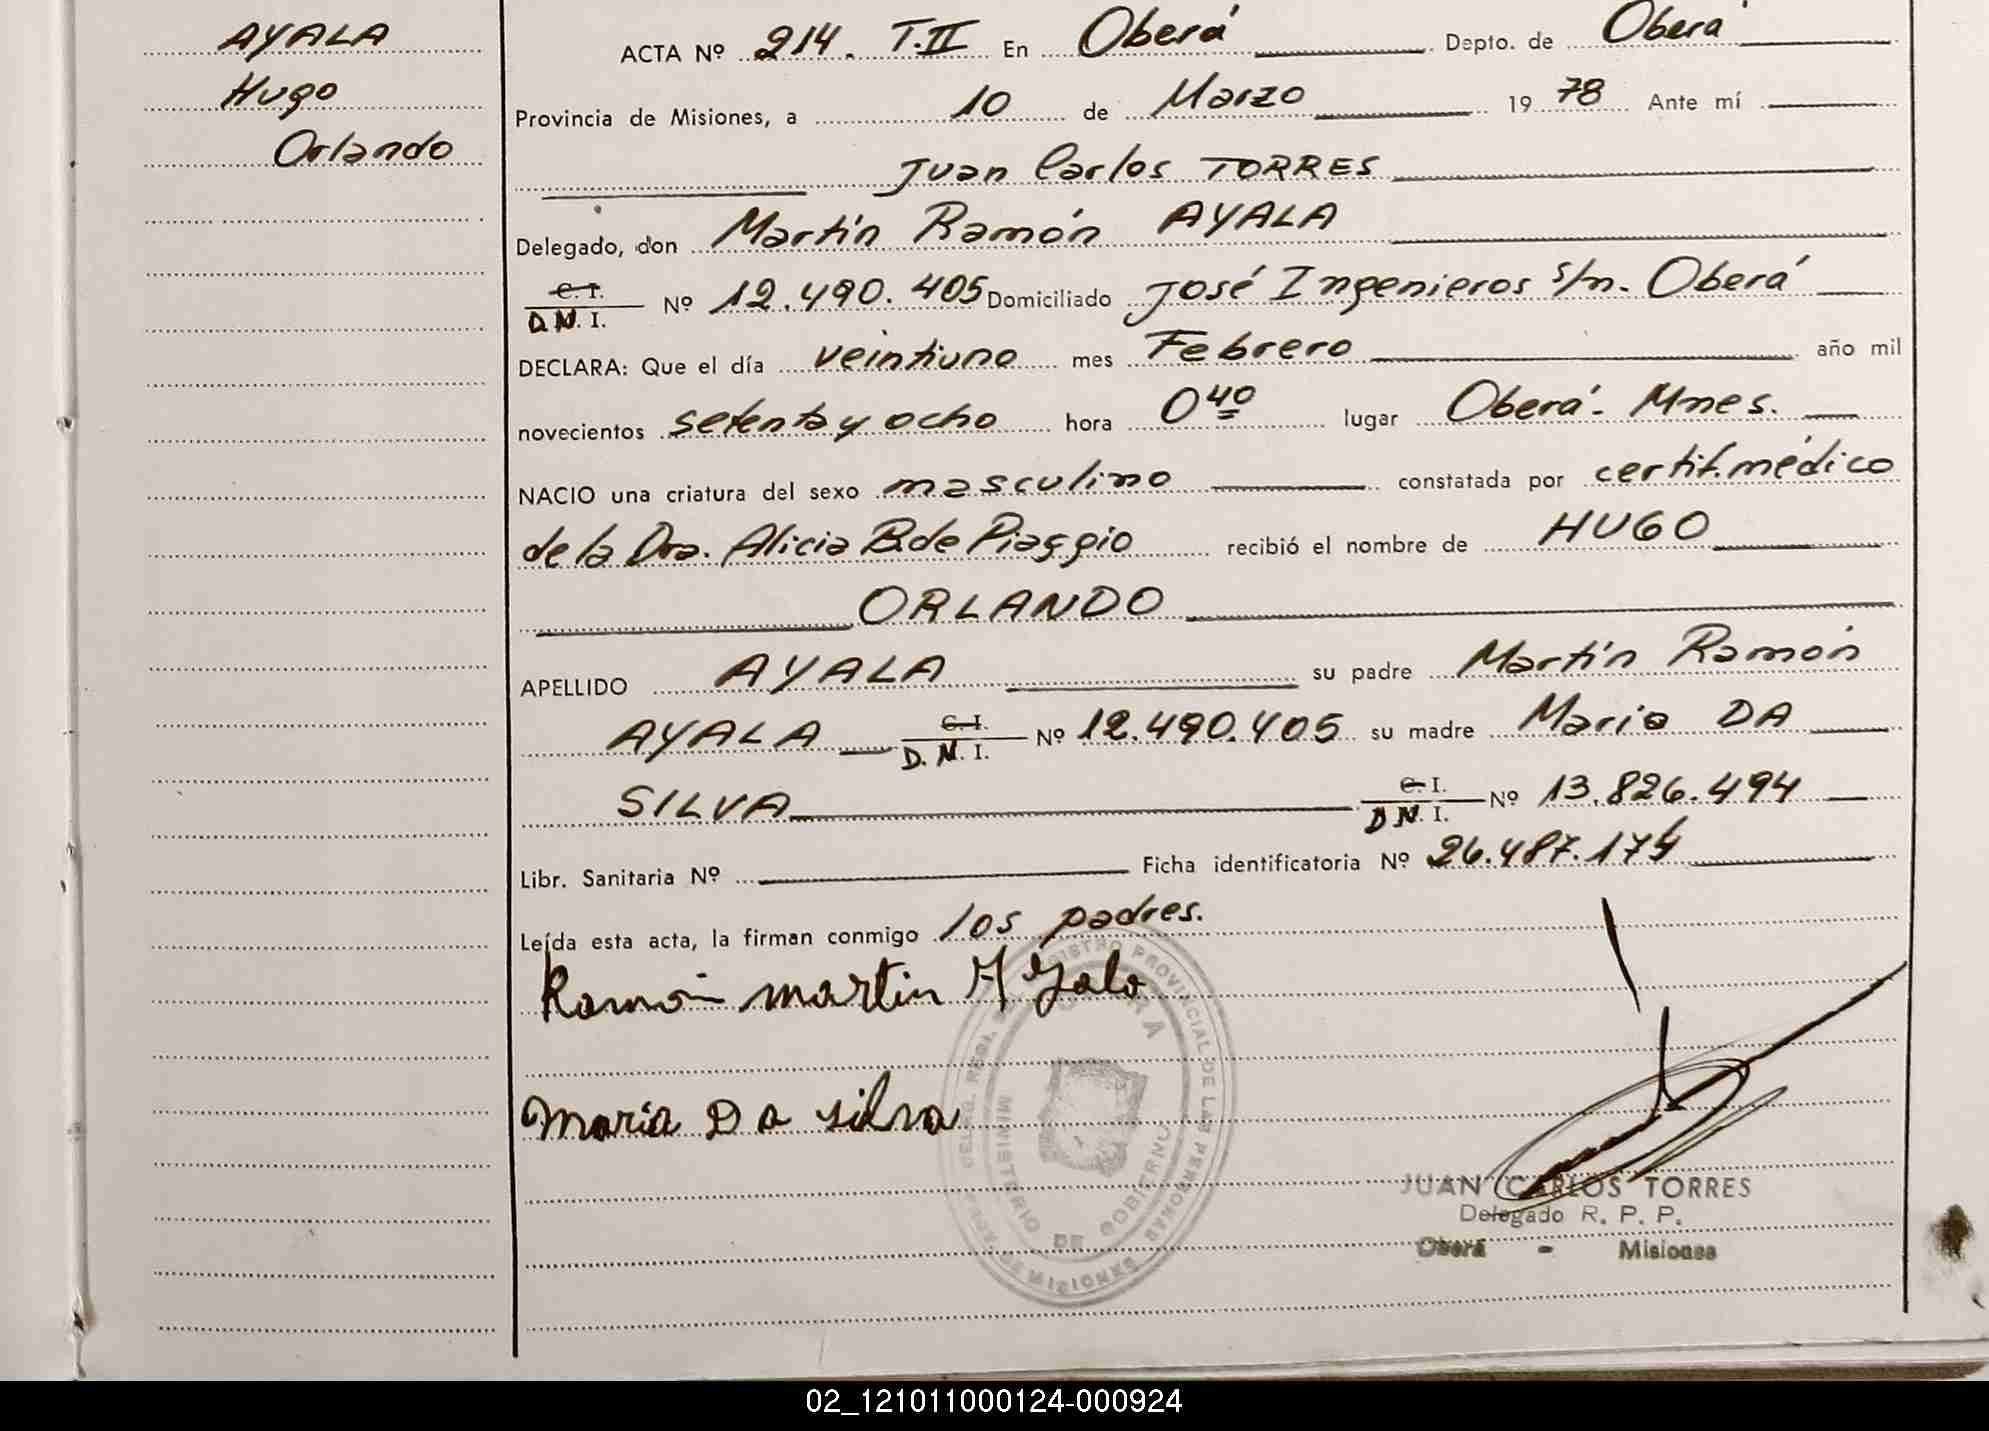 AYALA
Hugo
Orlando
ACTA Nº 214. T.II En Oberá Depto. de Oberá
Provincia de Misiones, a 10 de Marzo 19 78 Ante mí
Juan Carlos TORRES
Delegado, don Martín Ramón AYALA
C. I.
D.N.I. Nº 12.490.405 Domiciliado José Ingenieros s/n. Oberá
DECLARA: Que el día veintiuno mes Febrero año mil
novecientos setenta y ocho hora 0 40 lugar Oberá - Mnes.
NACIO una criatura del sexo masculino constatada por certif. médico
de la Dra. Alicia B. de Piaggio recibió el nombre de HUGO
ORLANDO
APELLIDO AYALA su padre Martín Ramón
AYALA C. I. D.N.I. Nº 12.490.405 su madre Maria DA
SILVA C. I. D.N.I. Nº 13.826.494
Libr. Sanitaria Nº Ficha identificatoria Nº 26.487.174
Leída esta acta, la firman conmigo los padres.
Ramón martin Ayala
maria Da silva
DELEG. REGISTRO PROVINCIAL DE LAS PERSONAS
OBERA
MINISTERIO DE GOBIERNO
MISIONES
JUAN CARLOS TORRES
Delegado R. P. P.
Oberá - Misiones
02_121011000124-000924